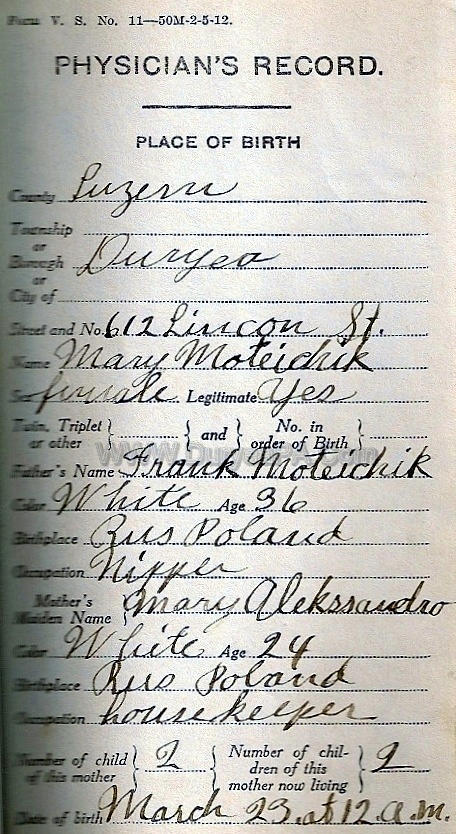 Form V. S. No. 11—50M-2-5-12.
PHYSICIAN'S RECORD.
PLACE OF BIRTH
County Luzern
Township
or
Borough Duryea
or
City of
Street and No. 612 Lincon St.
Name Mary Moteichik
Sex female Legitimate Yes
Twin, Triplet or other } { and } No. in order of Birth }
Father's Name Frank Moteichik
Color White Age 36
Birthplace Rus Poland
Occupation Nipper
Mother's Maiden Name } Mary Alekssandro
Color White Age 24
Birthplace Rus Poland
Occupation housekeeper
Number of child of this mother } 2 { Number of children of this mother now living } 2
Date of birth March 23. at 12 a.m.